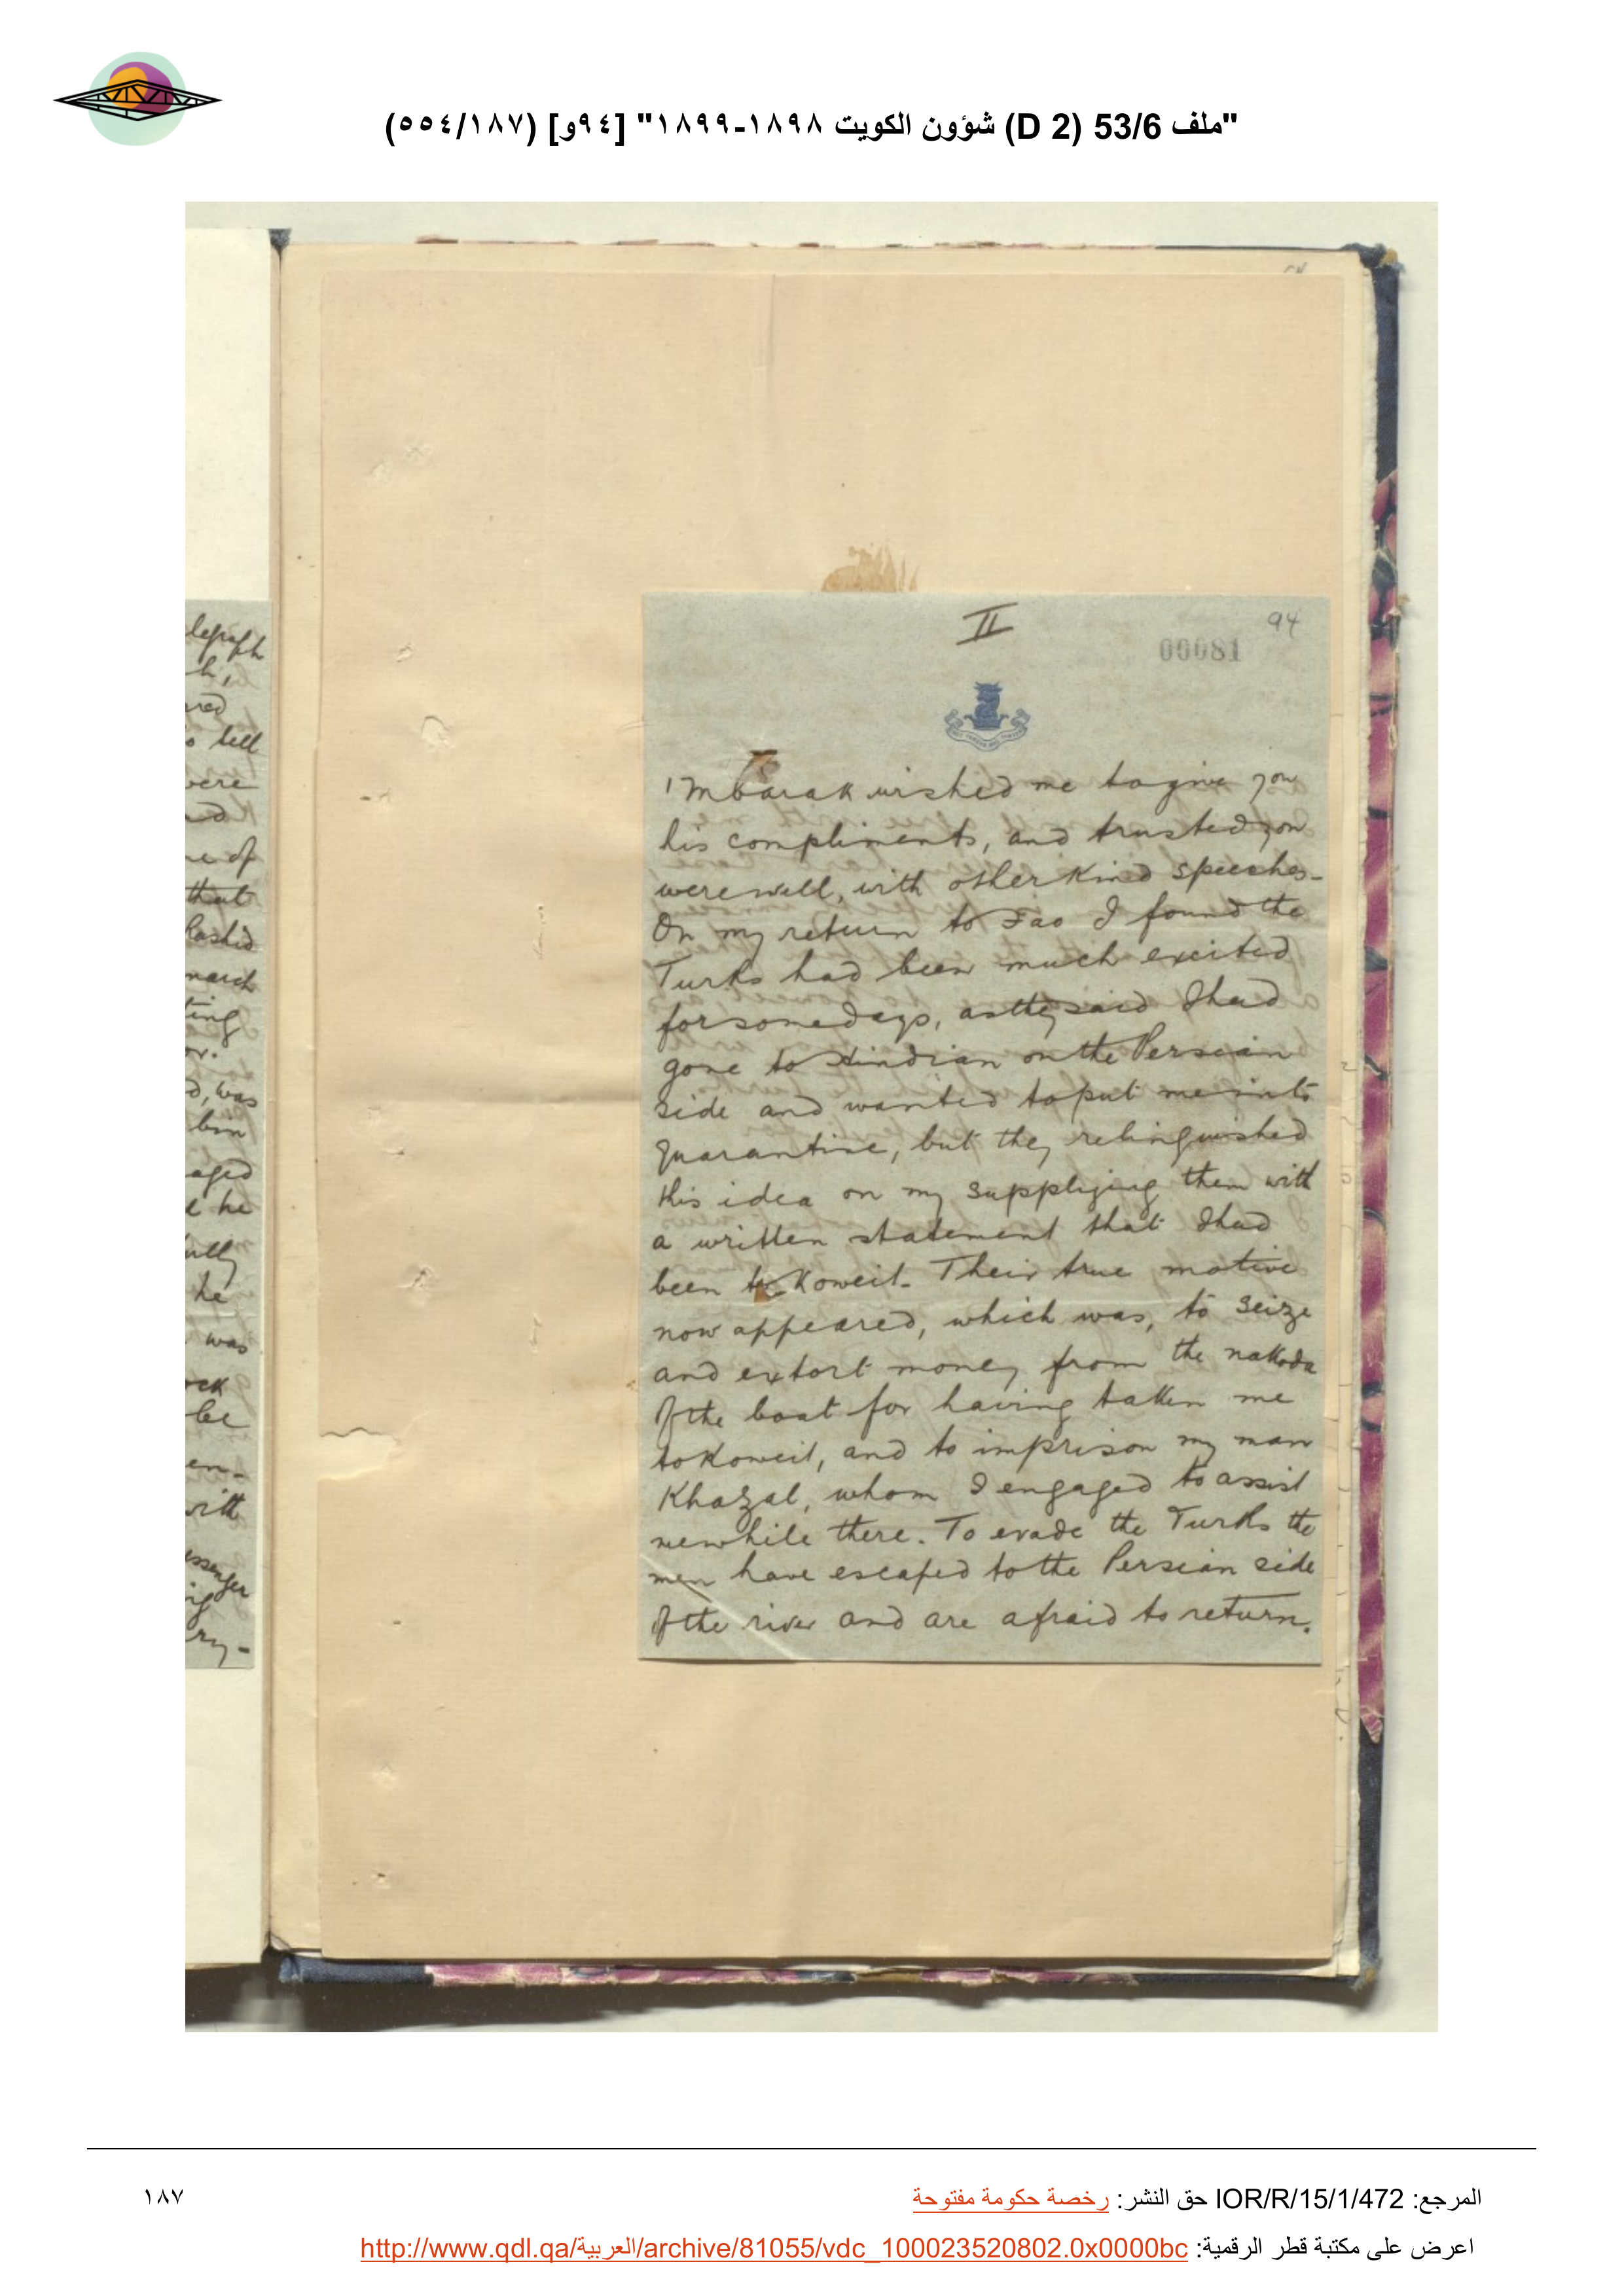 "ملف 53/6 (D 2) شؤون الكويت ١٨٩٨-١٨٩٩" [٩٤و] (١٨٧/٥٥٤)
II
94
00081
Mbarak wished me to give you
his compliments, and trusted you
were well, with other kind speeches-
On my return to Fao I found the
Turks had been much excited
for some days, as they said I had
gone to Hindian on the Persian
side and wanted to put me into
quarantine, but they relinquished
this idea on my supplying them with
a written statement that I had
been to Koweit. Their true motive
now appeared, which was, to seize
and extort money from the nakoda
of the boat for having taken me
to Koweit, and to imprison my man
Khazal, whom I engaged to assist
me while there. To evade the Turks the
men have escaped to the Persian side
of the river and are afraid to return.
legraph
h,
red
o tell
were
ed
re of
that
Rashid
march
ting
or.
d, was
bin
aged
l he
ully
he
was
ock
be
en-
with
essenger
ng
ry-
المرجع: IOR/R/15/1/472 حق النشر: رخصة حكومة مفتوحة
١٨٧
اعرض على مكتبة قطر الرقمية: http://www.qdl.qa/العربية/archive/81055/vdc_100023520802.0x0000bc